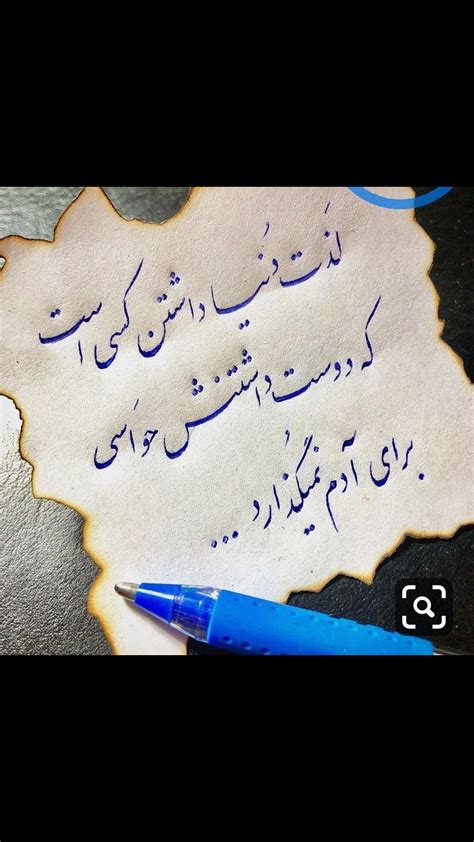 لذت دُنیا داشتن کسی است
که دوست داشتنش حواسی
برای آدم نمیگذُارد ...